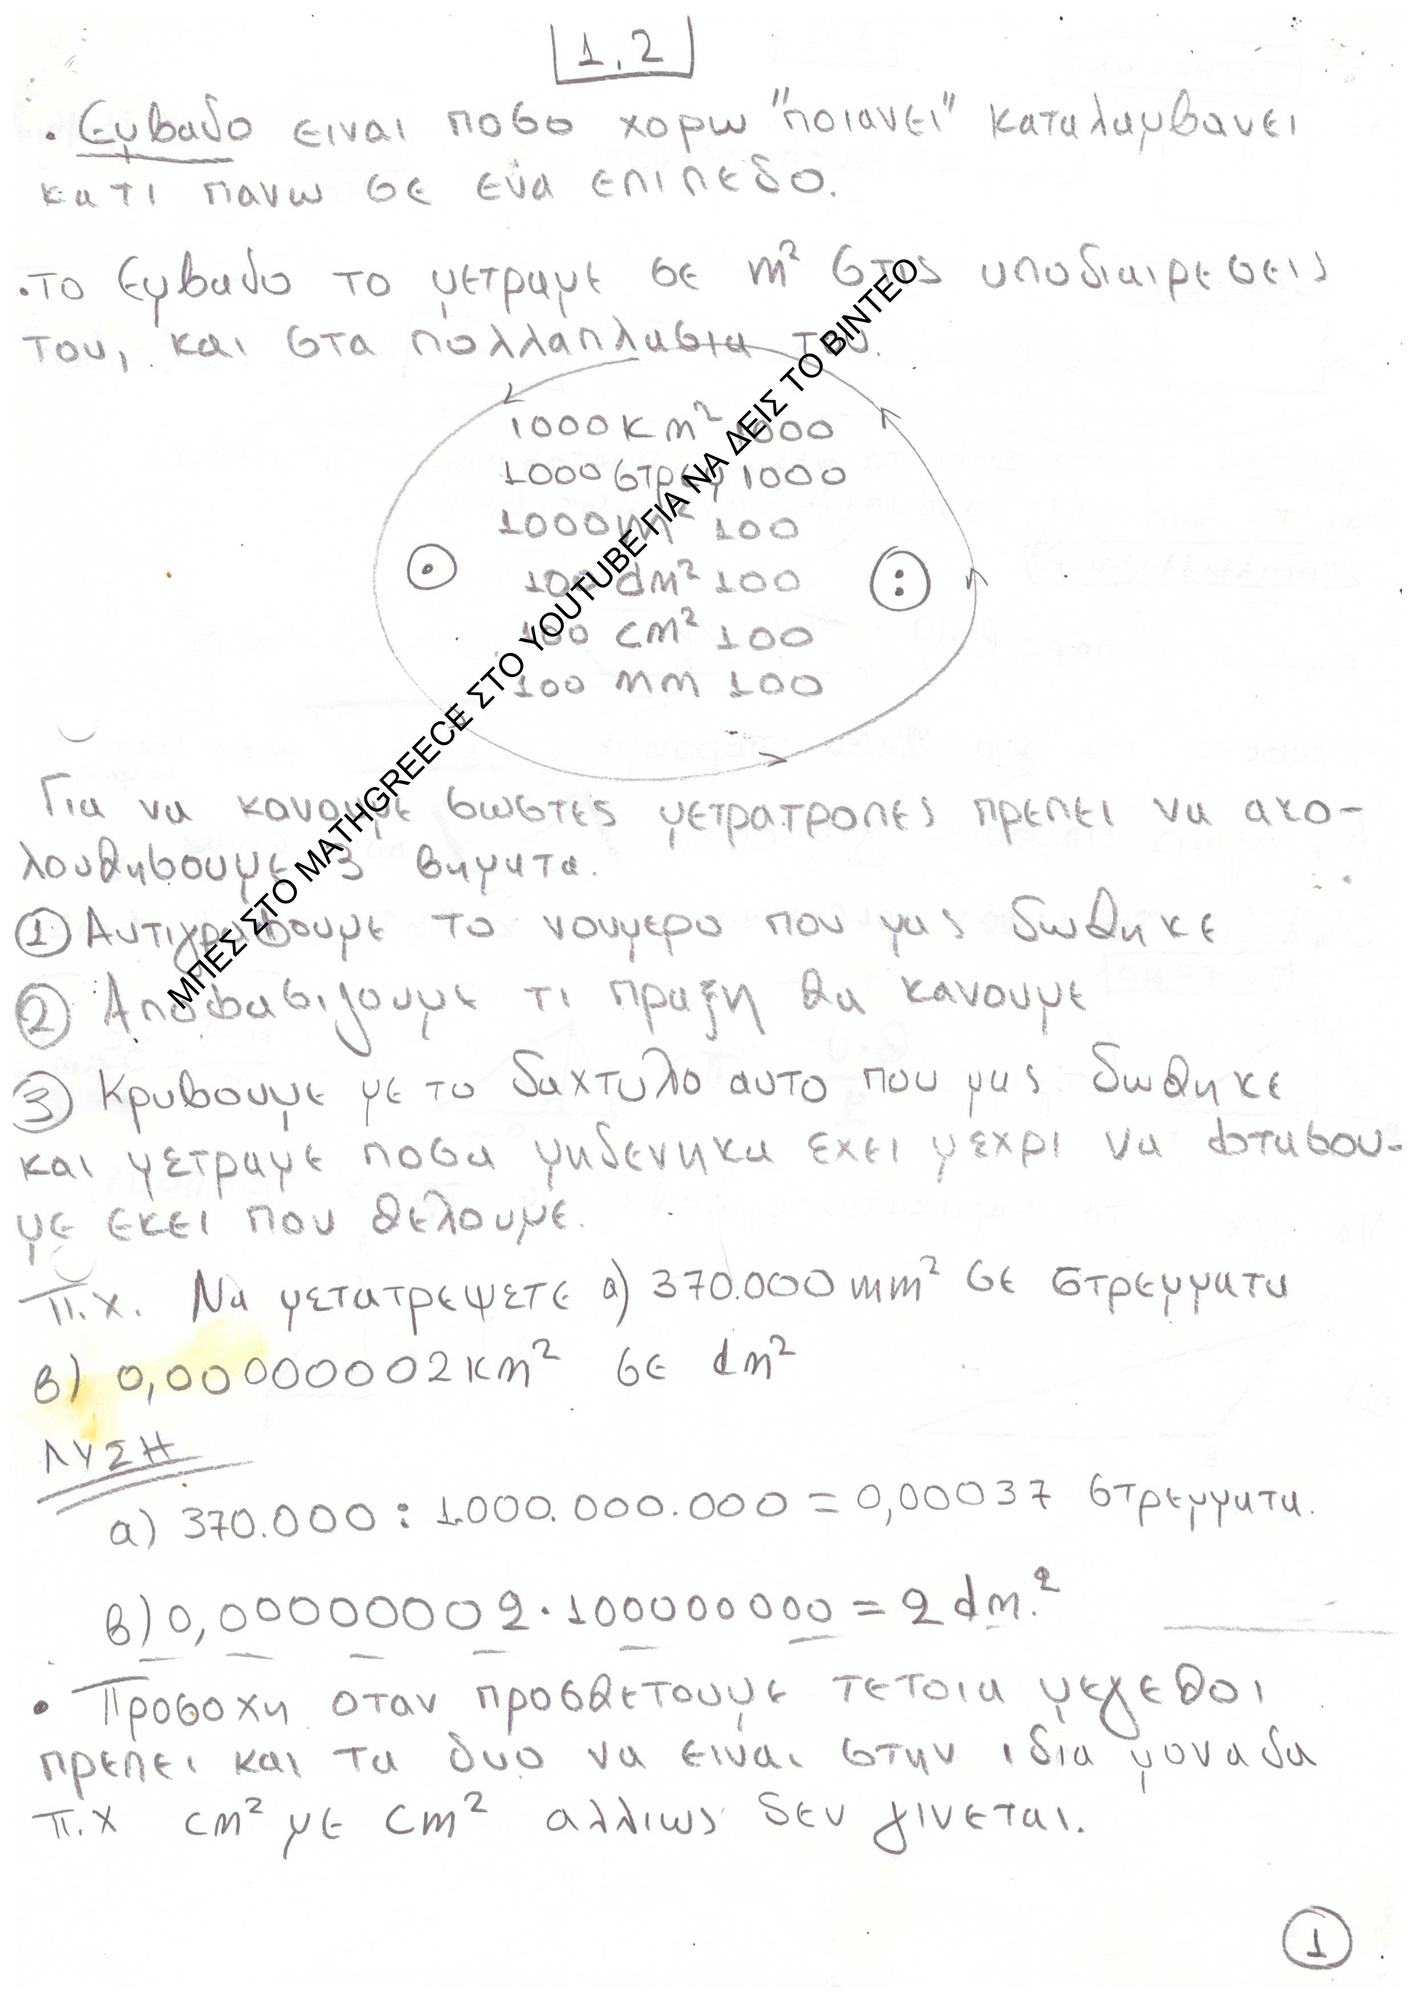 1,2
. Εμβαδο ειναι ποσο χορω "ποιανει" καταλαμβανει
κατι πανω σε ενα επιπεδο.
.το Εμβαδο το μετραμε σε m² στις υποδιαιρεσεις
του, και στα πολλαπλασια του.
1000 Km² 1000
1000 στρεμ 1000
1000 m² 100
· 100 dm² 100 :
100 cm² 100
100 mm 100
Για να κανουμε σωστες μετρατροπες πρεπει να ακο-
λουθησουμε 3 βηματα.
1 Αντιγραφουμε το νουμερο που μας δωθηκε
2 Αποφασιζουμε τι πραξη θα κανουμε
3 Κρυβουμε με το δαχτυλο αυτο που μας δωθηκε
και μετραμε ποσα μηδενηκα εχει μεχρι να φτασου-
με εκει που θελουμε.
π.χ. Να μετατρεψετε α) 370.000 mm² σε στρεμματα
β) 0,00000002 km² σε dm²
ΛΥΣΗ
α) 370.000 : 1.000.000.000 = 0,00037 στρεμματα.
β) 0,00000002 · 100000000 = 2 dm.²
• Προσοχη οταν προσθετουμε τετοια μεγεθοι
πρεπει και τα δυο να ειναι στην ιδια μοναδα
π.χ cm² με cm² αλλιως δεν γινεται.
1
ΜΠΕΣ ΣΤΟ MATHGREECE ΣΤΟ YOUTUBE ΓΙΑ ΝΑ ΔΕΙΣ ΤΟ ΒΙΝΤΕΟ